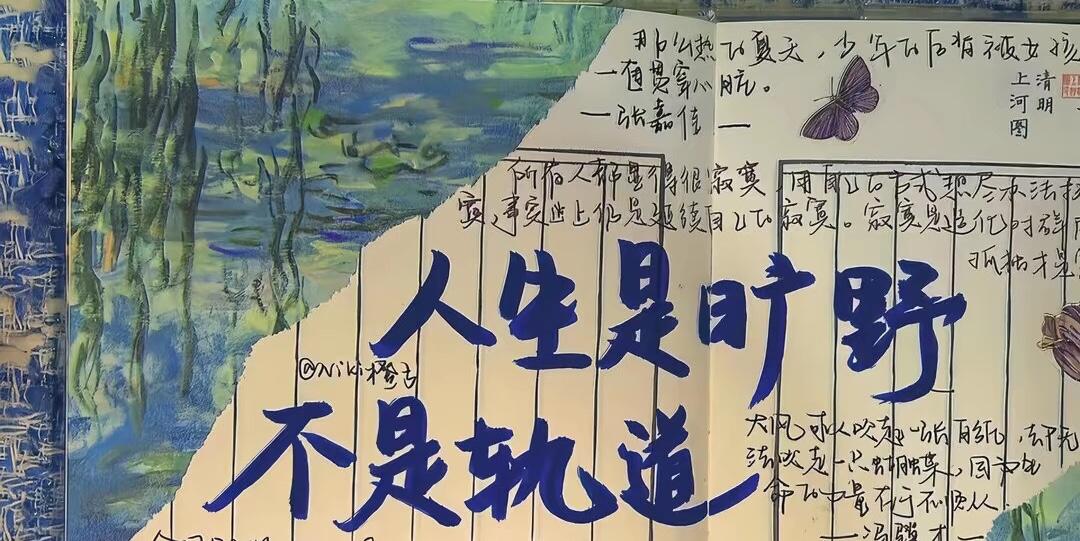 那么热的夏天，少年的后背被女孩
一直贯穿心脏。
—张嘉佳—
清明
上河图
所有人都显得很寂寞，用自己的方式想尽办法
寞，事实上仍是延续自己的寂寞。寂寞是造化对群
孤独才是
人生是旷野
@Niki橙子
不是轨道
大风可以吹走一张白纸，却无
法吹走一只蝴蝶，因为生
命的力量在于不顺从
—冯骥才—